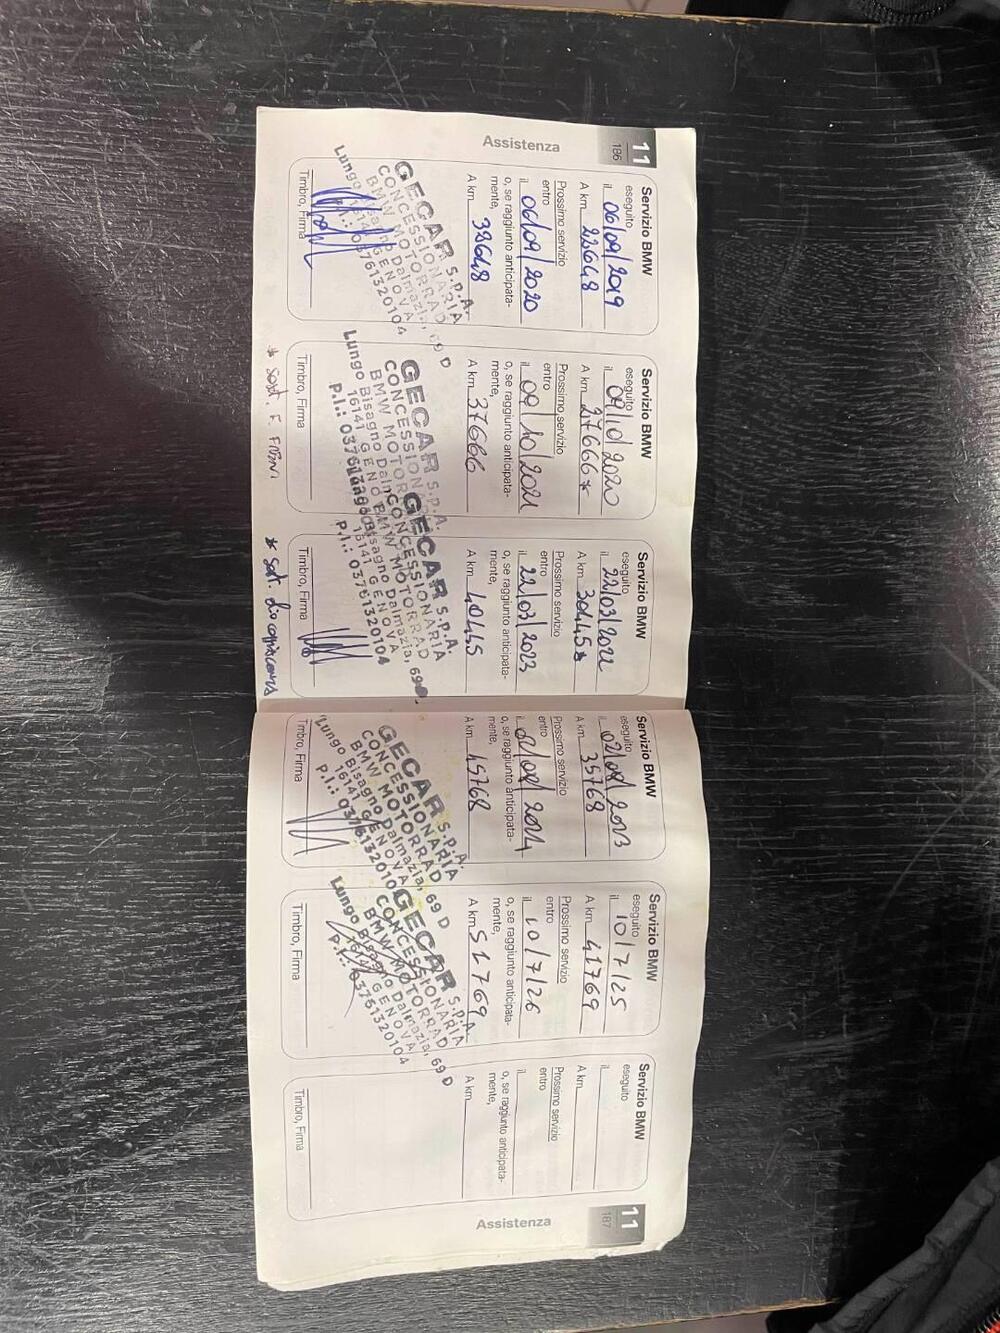 11
186
Assistenza
Servizio BMW
eseguito
il 06/09/2019
A km 22648
Prossimo servizio
entro
il 06/09/2020
o, se raggiunto anticipata-
mente,
A km 38648
GECAR S.P.A.
CONCESSIONARIA
BMW MOTORRAD
Lungo Bisagno Dalmazia, 69 D
16141 GENOVA
P.I.: 03761320104
Timbro, Firma
Servizio BMW
eseguito
il 09/10/2020
A km 27666*
Prossimo servizio
entro
il 09/10/2021
o, se raggiunto anticipata-
mente,
A km 37666
GECAR S.P.A.
CONCESSIONARIA
BMW MOTORRAD
Lungo Bisagno Dalmazia
16141 GENOVA
P.I.: 03761320104
Timbro, Firma
* sost. F. FRENI
Servizio BMW
eseguito
il 22/03/2022
A km 30445*
Prossimo servizio
entro
il 22/03/2023
o, se raggiunto anticipata-
mente,
A km 40445
GECAR S.P.A.
CONCESSIONARIA
BMW MOTORRAD
Lungo Bisagno Dalmazia, 69
16141 GENOVA
P.I.: 03761320104
Timbro, Firma
* sost.
Servizio BMW
eseguito
il 2023
A km 35768
Prossimo servizio
entro
il 2024
o, se raggiunto anticipata-
mente,
A km 45768
GECAR S.P.A.
CONCESSIONARIA
BMW MOTORRAD
Lungo Bisagno Dalmazia, 69 D
16141 GENOVA
P.I.: 03761320104
Timbro, Firma
Servizio BMW
eseguito
il 10/7/25
A km 41769
Prossimo servizio
entro
il 10/7/26
o, se raggiunto anticipata-
mente,
A km 51769
GECAR S.P.A.
CONCESSIONARIA
BMW MOTORRAD
Lungo Bisagno Dalmazia, 69 D
16141 GENOVA
P.I.: 03761320104
Timbro, Firma
Servizio BMW
eseguito
il
A km
Prossimo servizio
entro
il
o, se raggiunto anticipata-
mente,
A km
Timbro, Firma
Assistenza
11
187